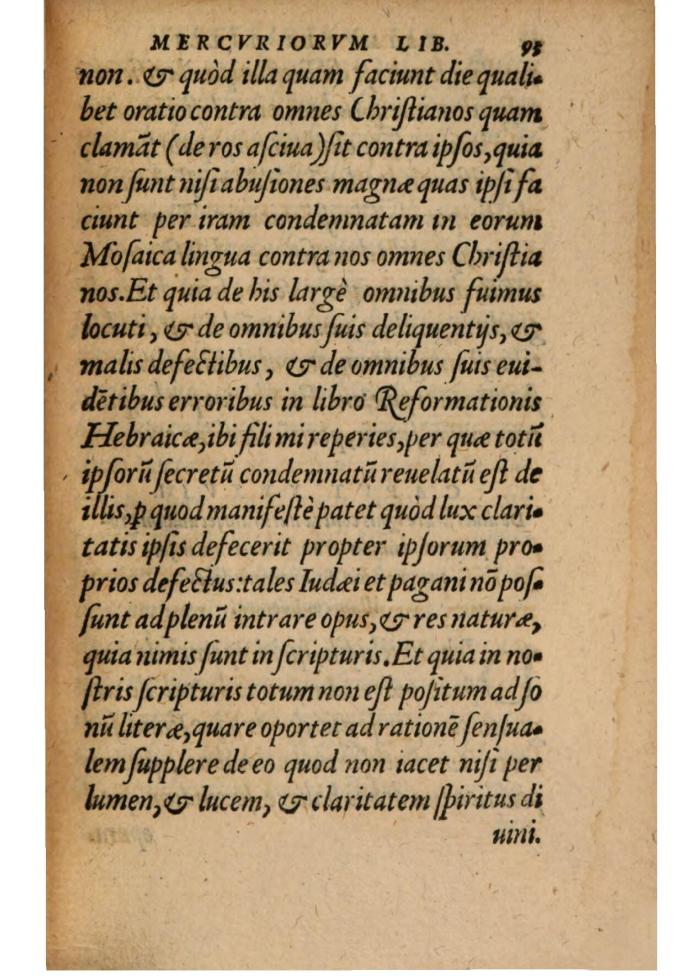 MERCVRIORVM LIB. 93
non. & quòd illa quam faciunt die quali-
bet oratio contra omnes Chriſtianos quam
clamãt (de ros aſciua)ſit contra ipſos, quia
non ſunt niſi abuſiones magnæ quas ipſi fa
ciunt per iram condemnatam in eorum
Moſaica lingua contra nos omnes Chriſtia
nos. Et quia de his largè omnibus fuimus
locuti, & de omnibus ſuis deliquentijs, &
malis defectibus, & de omnibus ſuis eui-
dẽtibus erroribus in libro Reformationis
Hebraicæ, ibi fili mi reperies, per quæ totũ
ipſorũ ſecretũ condemnatũ reuelatũ eſt de
illis, ꝑ quod manifeſtè patet quòd lux clari-
tatis ipſis defecerit propter ipſorum pro-
prios defectus: tales Iudæi et pagani nõ poſ-
ſunt ad plenũ intrare opus, & res naturæ,
quia nimis ſunt in ſcripturis. Et quia in no-
ſtris ſcripturis totum non eſt poſitum ad ſo
nũ literæ, quare oportet ad rationẽ ſenſua-
lem ſupplere de eo quod non iacet niſi per
lumen, & lucem, & claritatem ſpiritus di
uini.